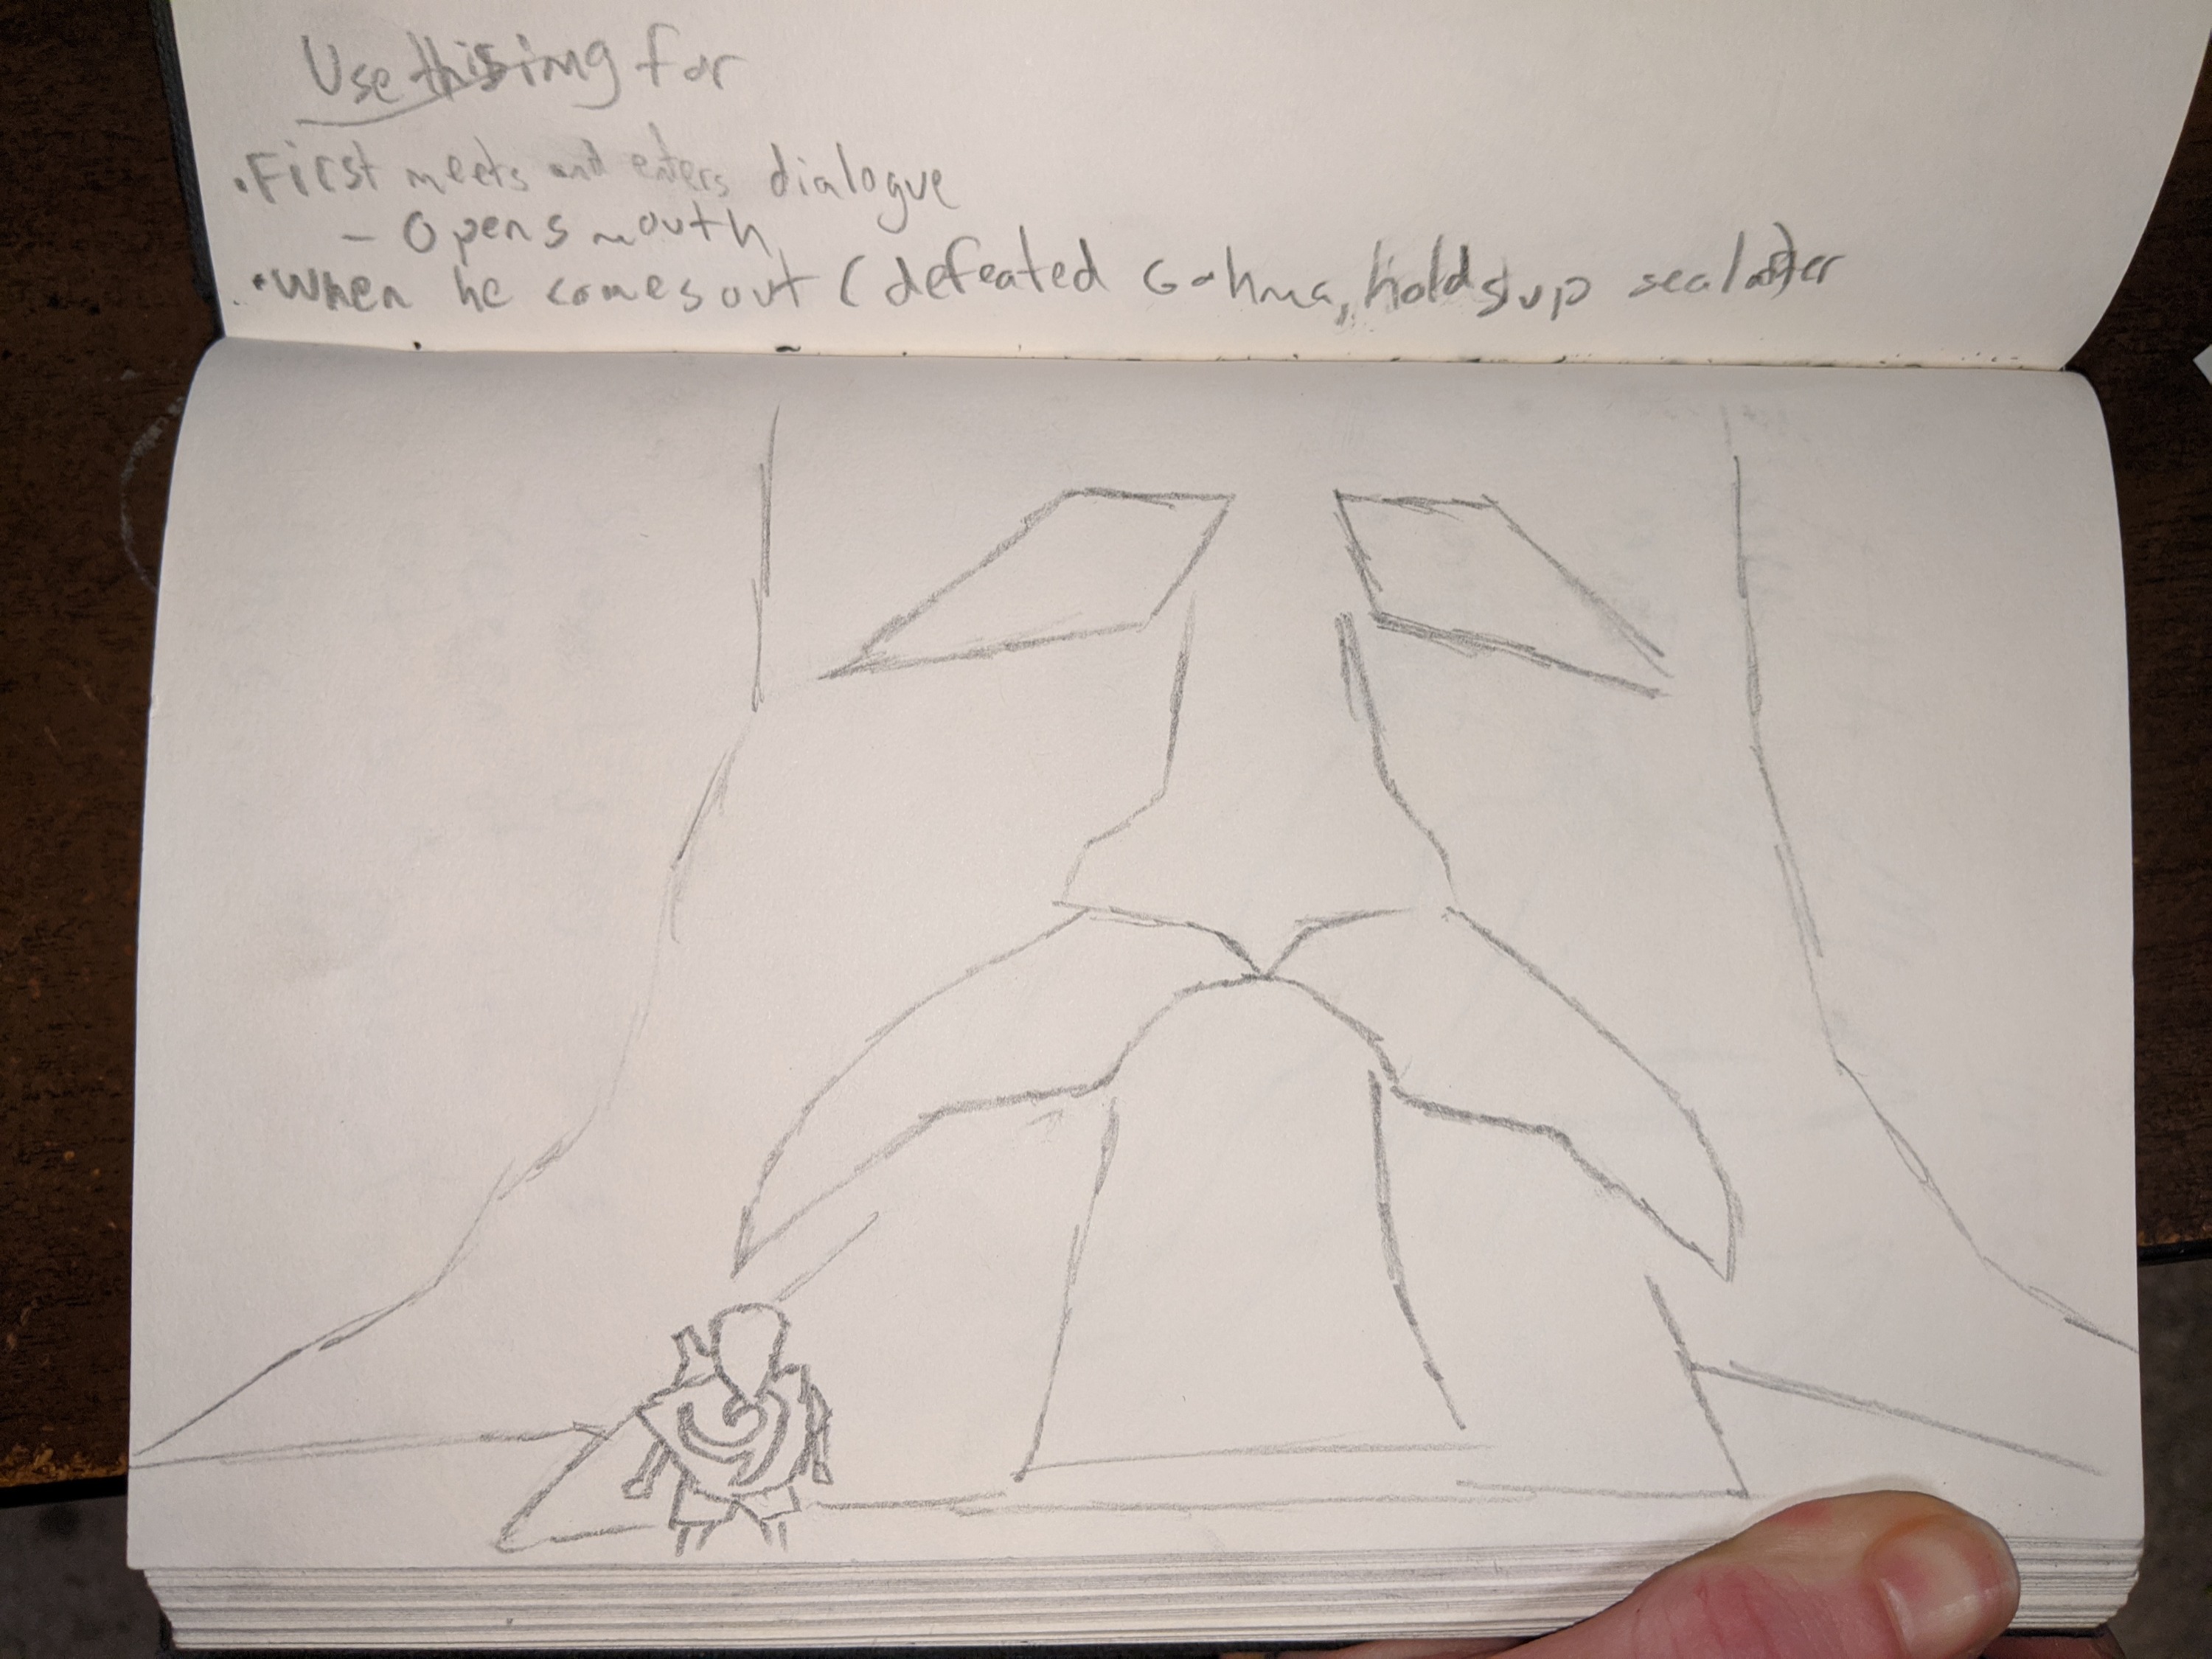 Use this img for
• First meets and enters dialogue
- Opens mouth
• When he comes out (defeated Gohma, holds up seal after